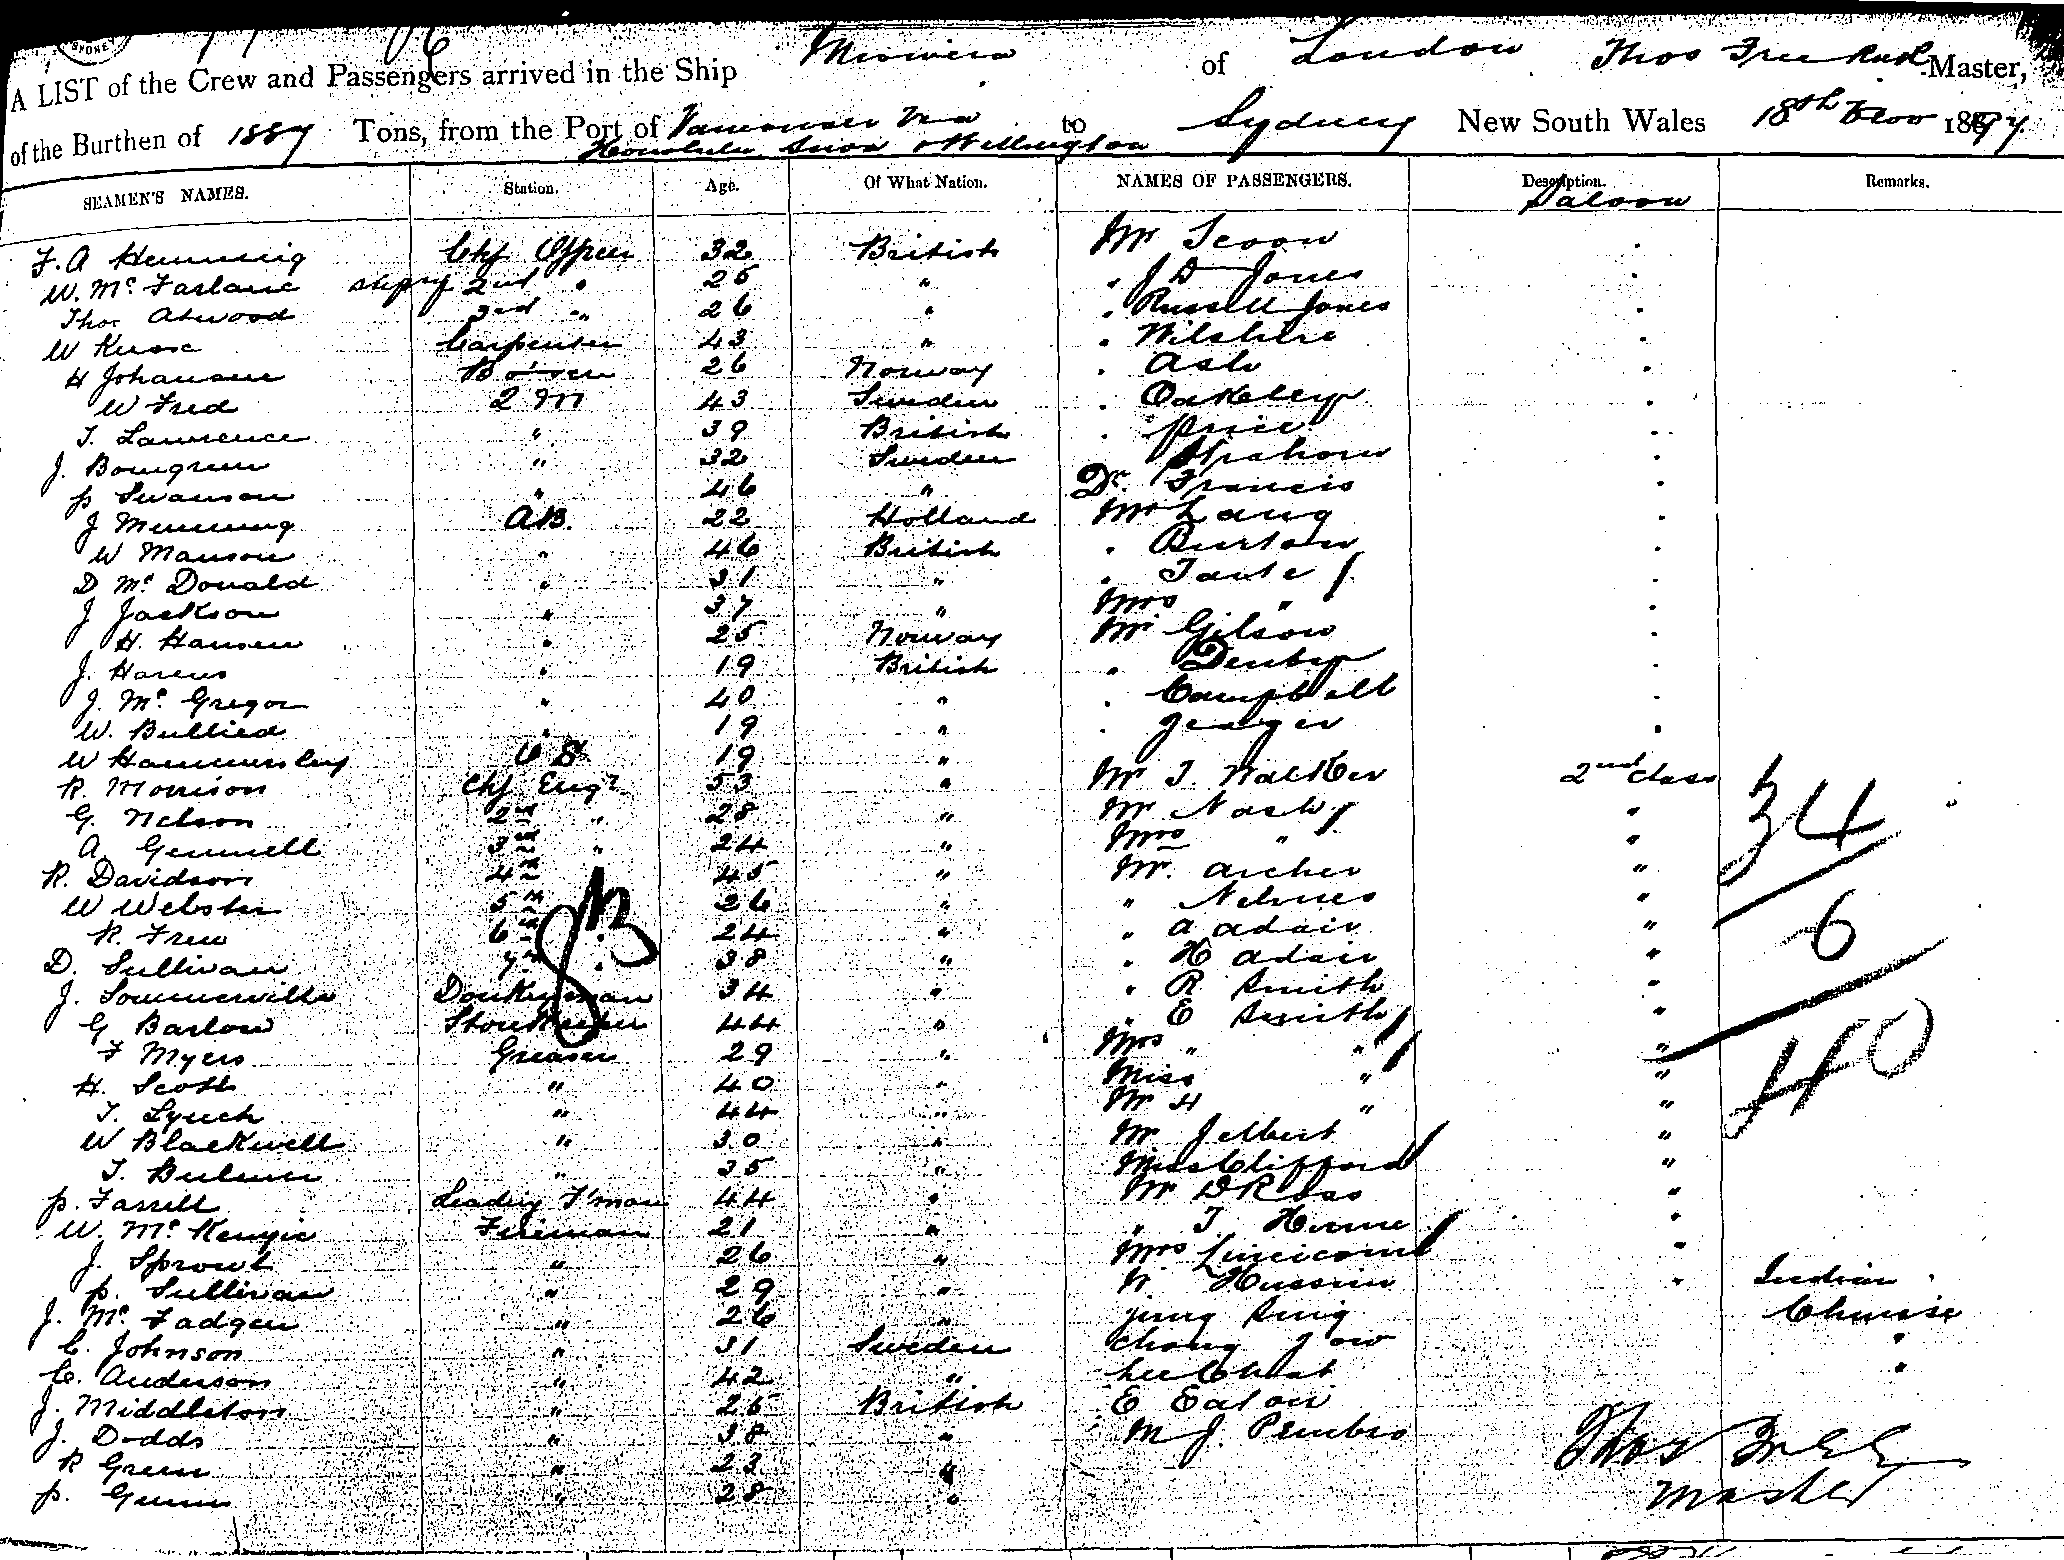 SYDNEY
A LIST of the Crew and Passengers arrived in the Ship Miowera of London Thos Free Master,
of the Burthen of 1889 Tons, from the Port of Vancouver Via to Sydney New South Wales 18th 1897
Honolulu Suva & Wellington
SEAMEN'S NAMES. Station. Age. Of What Nation. NAMES OF PASSENGERS. Description. Remarks.
Saloon
F. A Hemming Chf Officer 32 British Mr Scoon
W. Mc Farlane 2nd " 25 " " J D Jones
Thos Atwood 3rd " 26 " " Russell Jones
W Carpenter 43 " " Wilshire
H Johansen 26 Norway " Ash
W Fred 2 M 43 Sweden " Oakeley
T. Lawrence " 39 British " Price
J. " 32 Sweden Strahorn
P Swanson " 46 " Dr. Francis
J AB. 22 Holland Mr Lang
W Manson " 46 British " Burton
D Mc Donald " 31 " "
J Jackson " 37 " Mrs "
H. Hansen " 25 Norway Mr Gilson
J. " 19 British " Denby
J. Mc Gregor " 40 " " Campbell
W. Bullied " 19 " " Yeager
W Hammersley 19 "
R. Morrison Chf Engr 53 " Mr T. Walker 2nd Class
G. Nelson 2nd " 28 " Mr Nash "
A Gemmell 3rd " 24 " Mrs " "
R. Davidson 4th 45 " Mr. Archer "
W Webster 5th 26 " " Nelmes "
R. Frew 6th 24 " " A Adair "
D. Sullivan 7th " 38 " " H Adair "
J. Sommerville Donkeyman 34 " " R Smith "
G Barlow Storekeeper 44 " " E Smith "
F Myers Greaser 29 " Mrs " " "
H. Scott " 40 " Miss " "
T. Lynch " 44 " Mr H " "
W Blackwell " 30 " Mr Jelbert "
T. Bulmer " 35 " Miss Clifford "
P. Farrell Leading F'man 44 " Mr D Ross "
W. Mc Kenzie Fireman 21 " " T. Hume "
J. Sprout " 26 " Mrs Linicomb "
P. Sullivan " 29 " Hussein " Indian
J. Mc Fadgen " 26 " Jung Sing Chinese
C. Johnson " 31 Sweden Chong Jow "
C. Anderson " 42 " Lee "
J. Middleton " 25 British E Eaton
J. Dodds " 38 " M J.
R Green " 23 "
P. Gunn " 28 "
34
6
40
Thos Free
Master